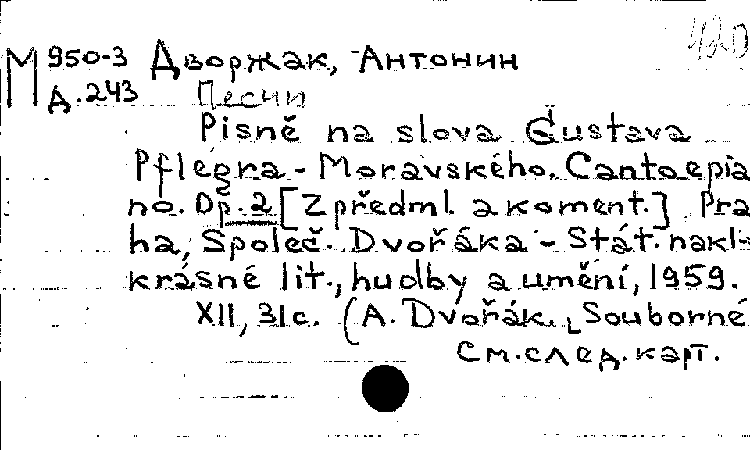 420
М 950-3 Дворжак, Антонин
Д.243 Песни
Pisně na slova Gustava
Pflegra - Moravského. Canto e pia
no. Op. 2 [Z předml. a koment.] Pra
ha, Společ. Dvořáka - Stát. nakl-
krásné lit., hudby a umění, 1959.
XII, 31 с. (A. Dvořák. Souborné
См. след. карт.